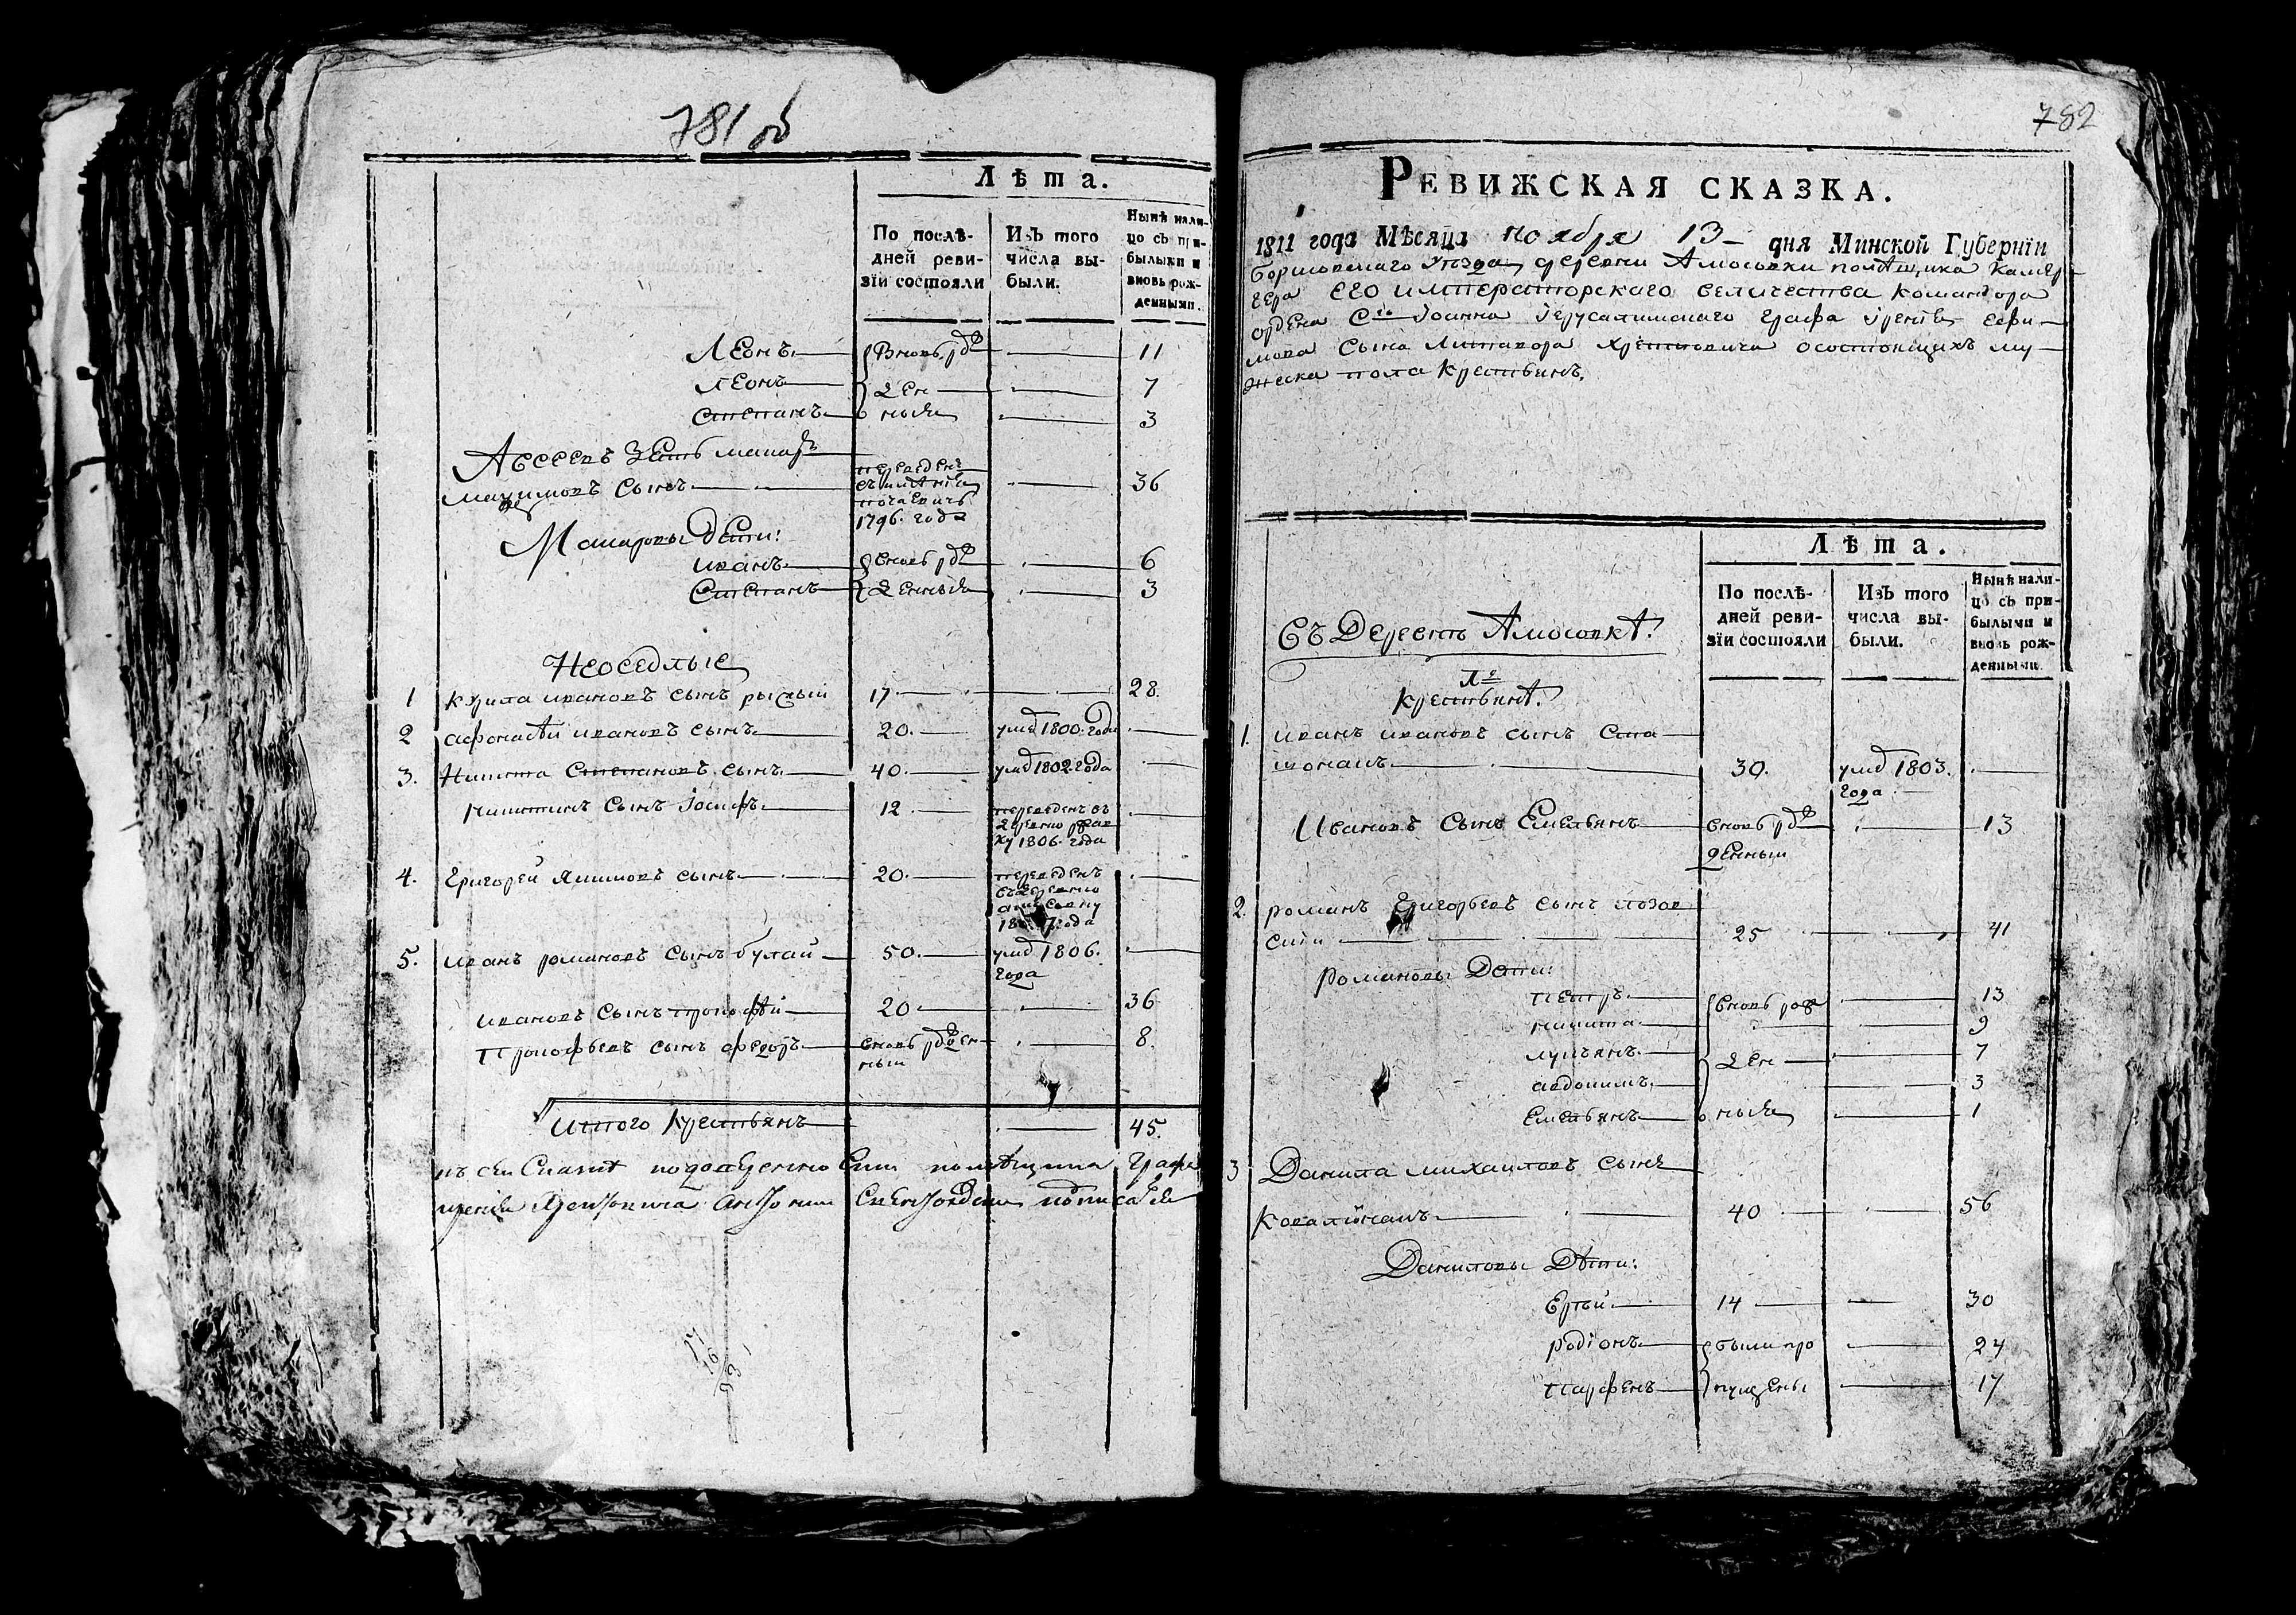 781 об
Лѣта.
По послѣ-
дней реви-
зіи состояли
Изъ того
числа вы-
были.
Нынѣ нали-
цо съ при-
былыми и
вновь рож-
денными.
Леонъ 11
Леонъ 7
Степанъ 3
Вновь рож
ден
ныя
36
сынъ
переведенъ
1796. года
Макаровы дети:
Иванъ вновь рож 6
Степанъ денныя 3
Неоседлые
1 Курила Ивановъ сынъ 17 28.
2 Афонасѣй Ивановъ сынъ 20. умд 1800. года
3. Никита Степановъ сынъ 40. умд 1802 года
Никитинъ сынъ Іосифъ 12 переведенъ въ
деревню
1806. года
4. Григорей Якимовъ сынъ 20. переведенъ
въ деревню
года
5. Иванъ Романовъ сынъ булай 50. умд 1806.
года
Ивановъ сынъ Прокофѣй 20 36
Прокофьевъ сынъ Федоръ вновь рожден 8.
ный
Итого Крестьянъ 45.
къ сей Сказке подоверенности помѣщика Графа
782
Ревижская сказка.
1811 года Мѣсяца ноября 13 дня Минской Губерніи
Борисовскаго уѣзда деревни Амосовки помѣщика камер
гера его императорскаго величества командора
ордена Сго Іоанна Іерусалимскаго графа Іренея Ефи
мова сына Литавора Хрептовича осостоящихъ му
жеска пола Крестьянъ.
Лѣта.
По послѣ-
дней реви-
зіи состояли
Изъ того
числа вы-
были.
Нынѣ нали-
цо съ при-
былыми и
вновь рож-
денными.
Въ Деревнѣ Амосовкѣ.
Крестьянѣ.
1. Иванъ Ивановъ сынъ
30. умд 1803.
года
Ивановъ сынъ Емельянъ вновь рож 13
денный
2. Романъ Григорьевъ сынъ
25 41
Романовы Дети:
Петръ вновь рож 13
Никита 9
Лукъянъ ден 7
Авдокимъ 3
Емельянъ ныя 1
3 Данила Михаиловъ сынъ
Ковалionакъ 40 56
Даниловы Дѣти:
14 30
Родіонъ были про 24
Парфенъ пущены 17